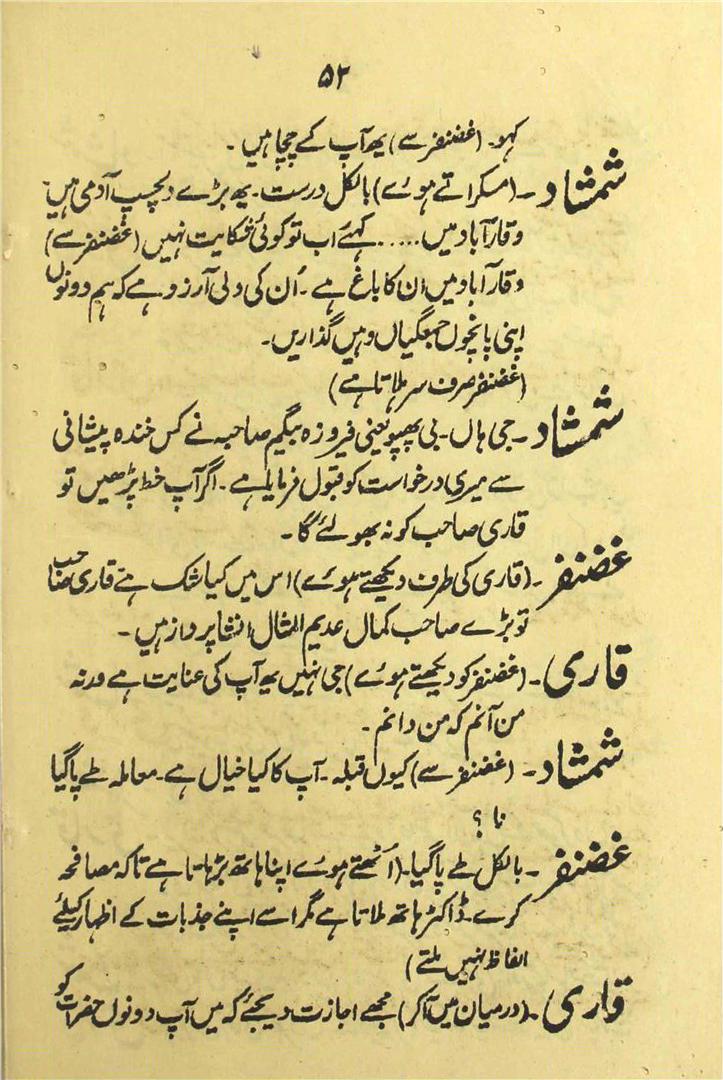 ۵۲
کہو۔ (غضنفر سے) یہ آپ کے چچا ہیں ۔
شمشاد ۔ (مسکراتے ہوے) بالکل درست۔ یہ بڑے دلچسپ آدمی ہیں
وقار آباد میں ..... کہئے اب تو کوئی شکایت نہیں (غضنفر سے)
وقار آباد میں ان کا باغ ہے ۔ اُن کی ولی آرزو ہے کہ ہم دونوں
اپنی پانچوں جمعگیاں وہیں گذاریں ۔
(غضنفر صرف سر ہلاتا ہے)
شمشاد ۔ جی ہاں ۔ بی پھپو یعنی فیروزہ بیگم صاحبہ نے کس خندہ پیشانی
سے میری درخواست کو قبول فرمایا ہے ۔ اگر آپ خط پڑھیں تو
قاری صاحب کو نہ بھولئے گا ۔
غضنفر ۔ (قاری کی طرف دیکھتے ہوے) اس میں کیا شک ہے قاری صاحب
تو بڑے صاحب کمال عدیم المثال انشا پرداز ہیں ۔
قاری ۔ (غضنفر کو دیکھتے ہوے) جی نہیں یہ آپ کی عنایت ہے ورنہ
من آنم کہ من دانم ۔
شمشاد ۔ (غضنفر سے) کیوں قبلہ ۔ آپ کا کیا خیال ہے ۔ معاملہ طے پا گیا
نا ؟
غضنفر ۔ بالکل طے پا گیا ۔ (اُٹھتے ہوے اپنا ہاتھ بڑہاتا ہے تاکہ مصافحہ
کرے ۔ ڈاکٹر ہاتھ ملاتا ہے مگر اسے اپنے جذبات کے اظہار کیلئے
الفاظ نہیں ملتے)
قاری ۔ (درمیان میں آ کر) مجھے اجازت دیجئے کہ میں آپ دونوں حضرات کو